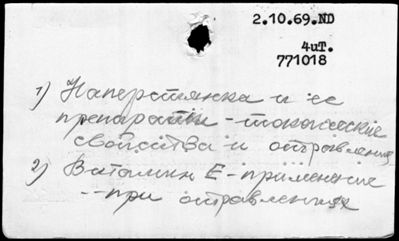 2.10.69.ND
4uT.
771018
1) Наперстянка и ее
препараты - токсические
свойства и отравления
2) Витамин Е - применение
-- при отравлениях